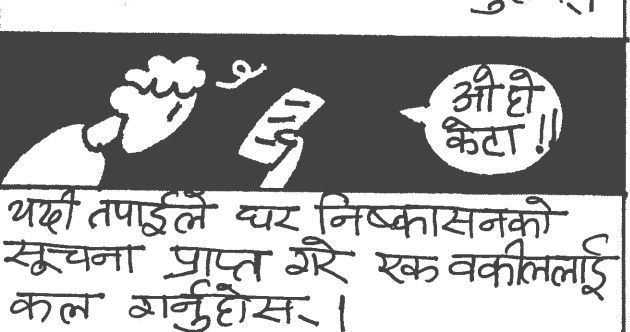 ओ हो
केटा !!
यदी तपाईले घर निष्कासनको
सूचना प्राप्त गरे एक वकीललाई
कल गर्नुहोस् ।